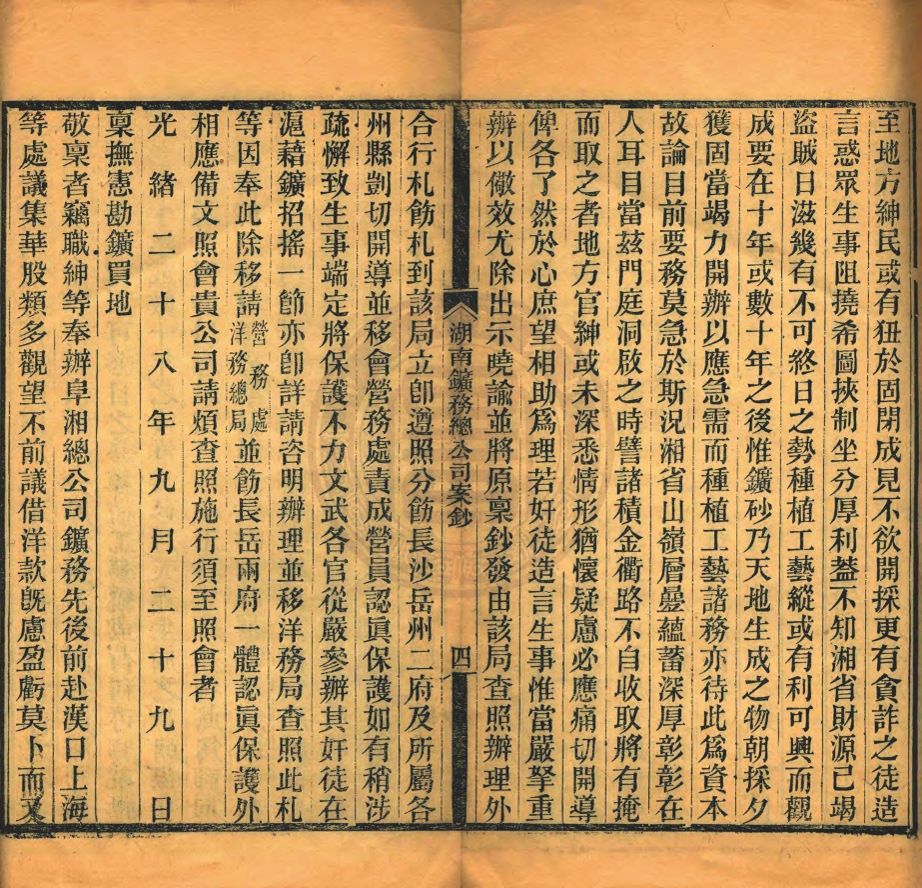 至地方紳民或有狃於固閉成見不欲開採更有貪詐之徒造
言惑眾生事阻撓希圖挾制坐分厚利葢不知湘省財源已竭
盜賊日滋幾有不可終日之勢種植工藝縱或有利可興而觀
成要在十年或數十年之後惟鑛砂乃天地生成之物朝採夕
獲固當竭力開辦以應急需而種植工藝諸務亦待此爲資本
故論目前要務莫急於斯況湘省山嶺層疊蘊蓄深厚彰彰在
人耳目當茲門庭洞啟之時譬諸積金衢路不自收取將有掩
而取之者地方官紳或未深悉情形猶懷疑慮必應痛切開導
俾各了然於心庶望相助爲理若奸徒造言生事惟當嚴拏重
辦以儆效尤除出示曉諭並將原稟鈔發由該局查照辦理外
湖南鑛務總公司案鈔
四
合行札飭札到該局立卽遵照分飭長沙岳州二府及所屬各
州縣剴切開導並移會營務處責成營員認眞保護如有稍涉
疏懈致生事端定將保護不力文武各官從嚴參辦其奸徒在
滬藉鑛招搖一節亦卽詳請咨明辦理並移洋務局查照此札
等因奉此除移請營務處洋務總局並飭長岳兩府一體認眞保護外
相應備文照會貴公司請煩查照施行須至照會者
光緒二十八年九月二十九日
稟撫憲勘鑛買地
敬稟者竊職紳等奉辦阜湘總公司鑛務先後前赴漢口上海
等處議集華股類多觀望不前議借洋款旣慮盈虧莫卜而又